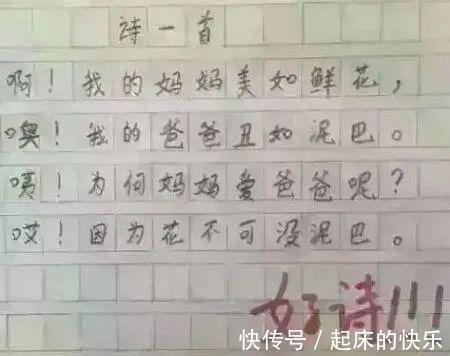 诗一首
啊！我的妈妈美如鲜花，
噢！我的爸爸丑如泥巴。
咦！为何妈妈爱爸爸呢？
哎！因为花不可没泥巴。
好诗!!!
快传号/起床的快乐